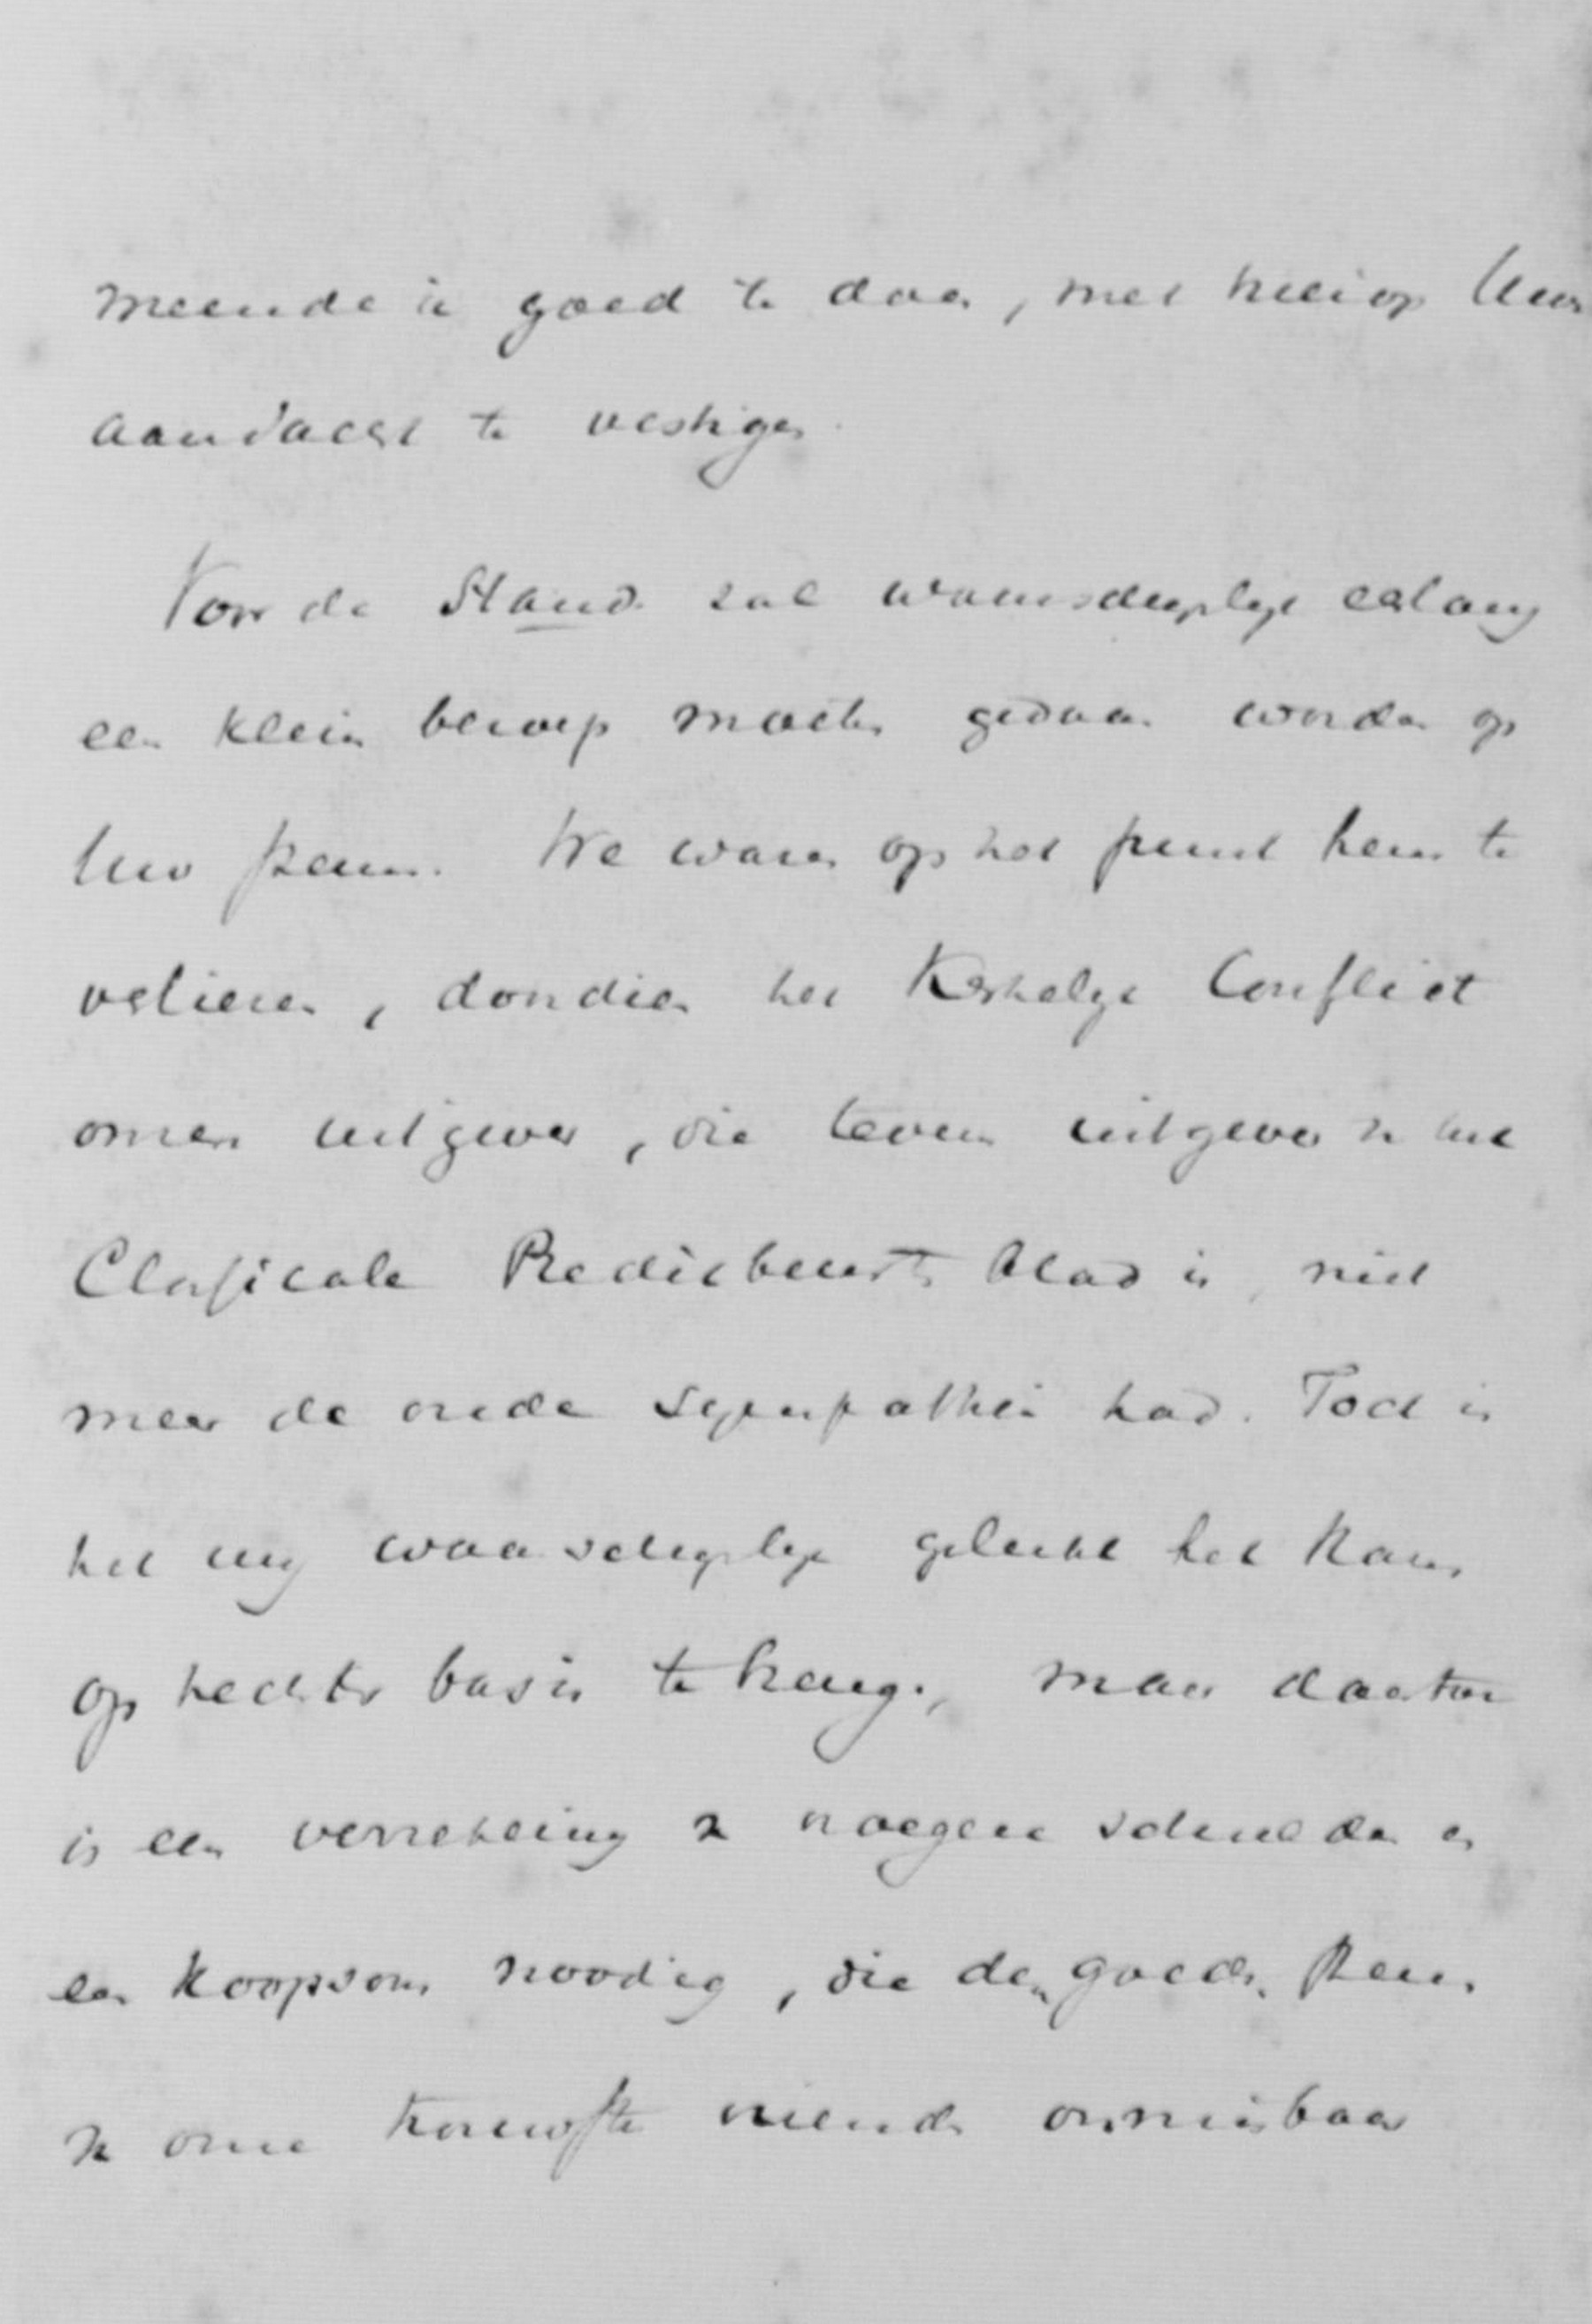 meende ik goed te doen, met hierop Uwe
aandacht te vestigen.
Voor de Stand. zal waarschijnlijk eerlang
een klein beroep moeten gedaan worden op
Uw steun. We waren op het punt hem te
verliezen, doordien het Kerkelijk Conflict
onzen uitgever, die tevens uitgever v. het
Classicale Predikbeurten blad is, niet
meer de oude sympathie had. Toch is
het mij waarschijnlijk gelukt het Kan.
op hechter basis te krijgen, maar daartoe
is een verrekening v. vroegere schulden en
een koopsom noodig, die den goeden steun
v. onze trouwste vrienden onmisbaar